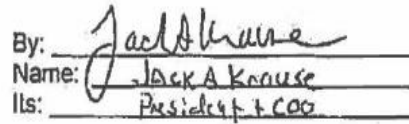 By: Jack A Krause
Name: JACK A Krause
Its: President + COO